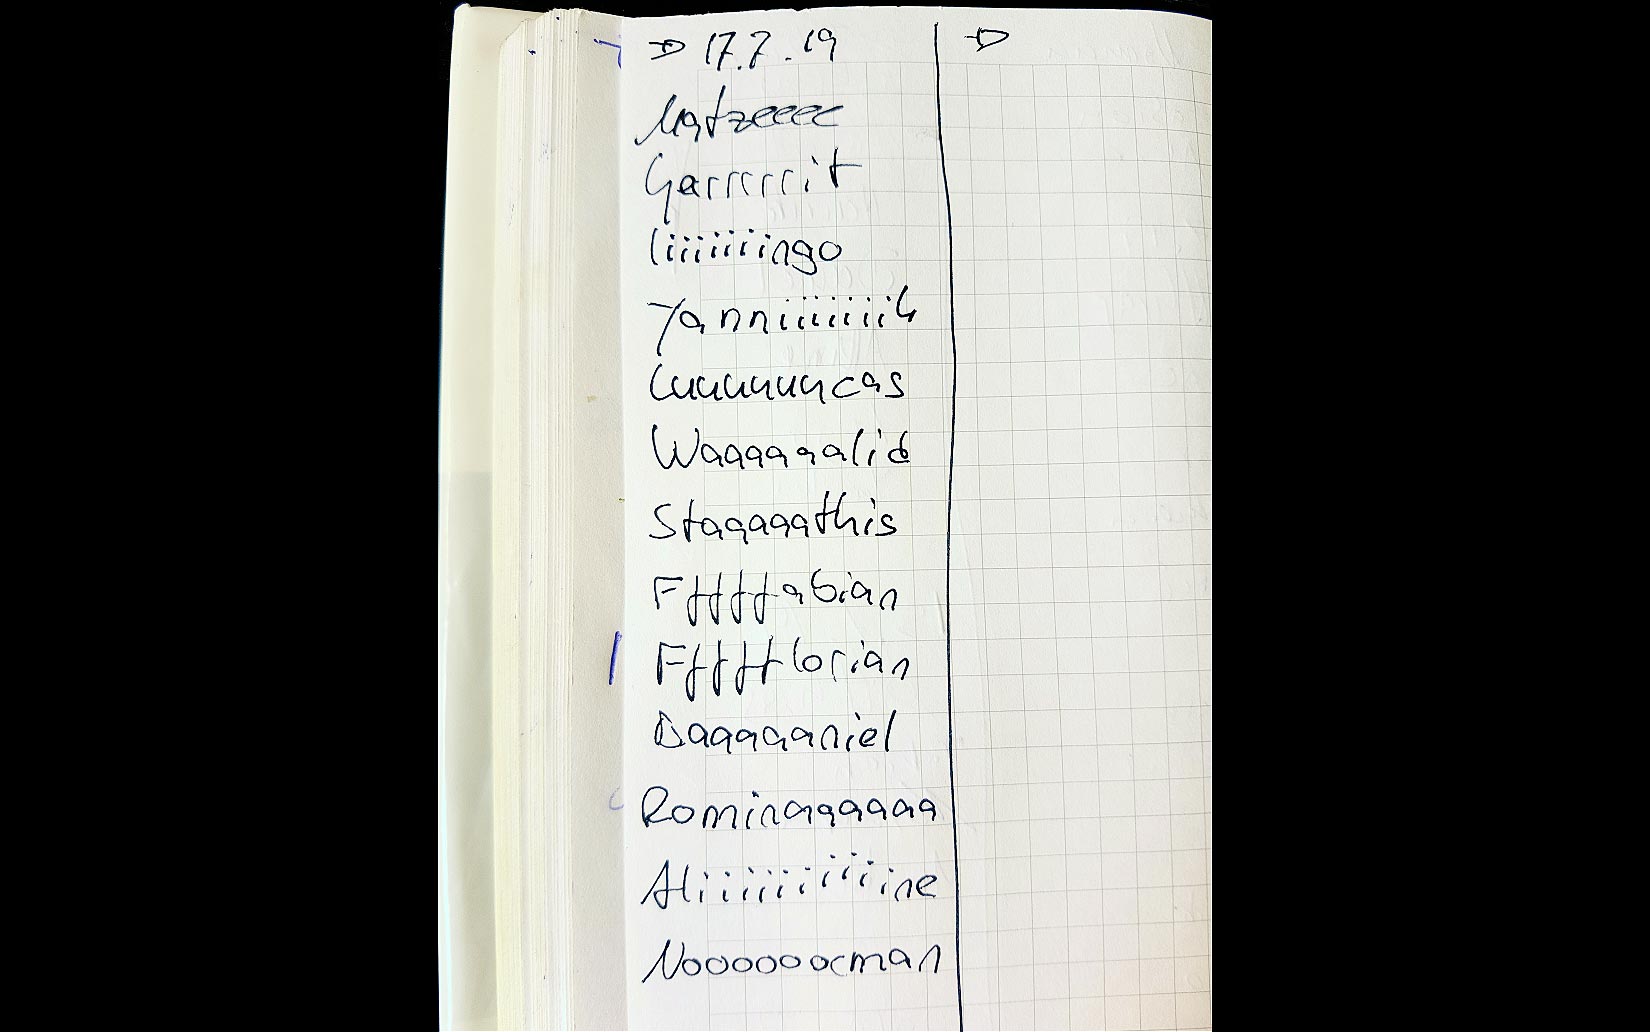 17.7.19
Matzeeee
Garrrrrrit
Iiiiiiiingo
Yanniiiiiiik
Luuuuuucas
Waaaaaalid
Staaaaathis
Fffffabian
Ffffflorian
Daaaaaaniel
Rominaaaaaaa
Aliiiiiiiiiine
Nooooooorman